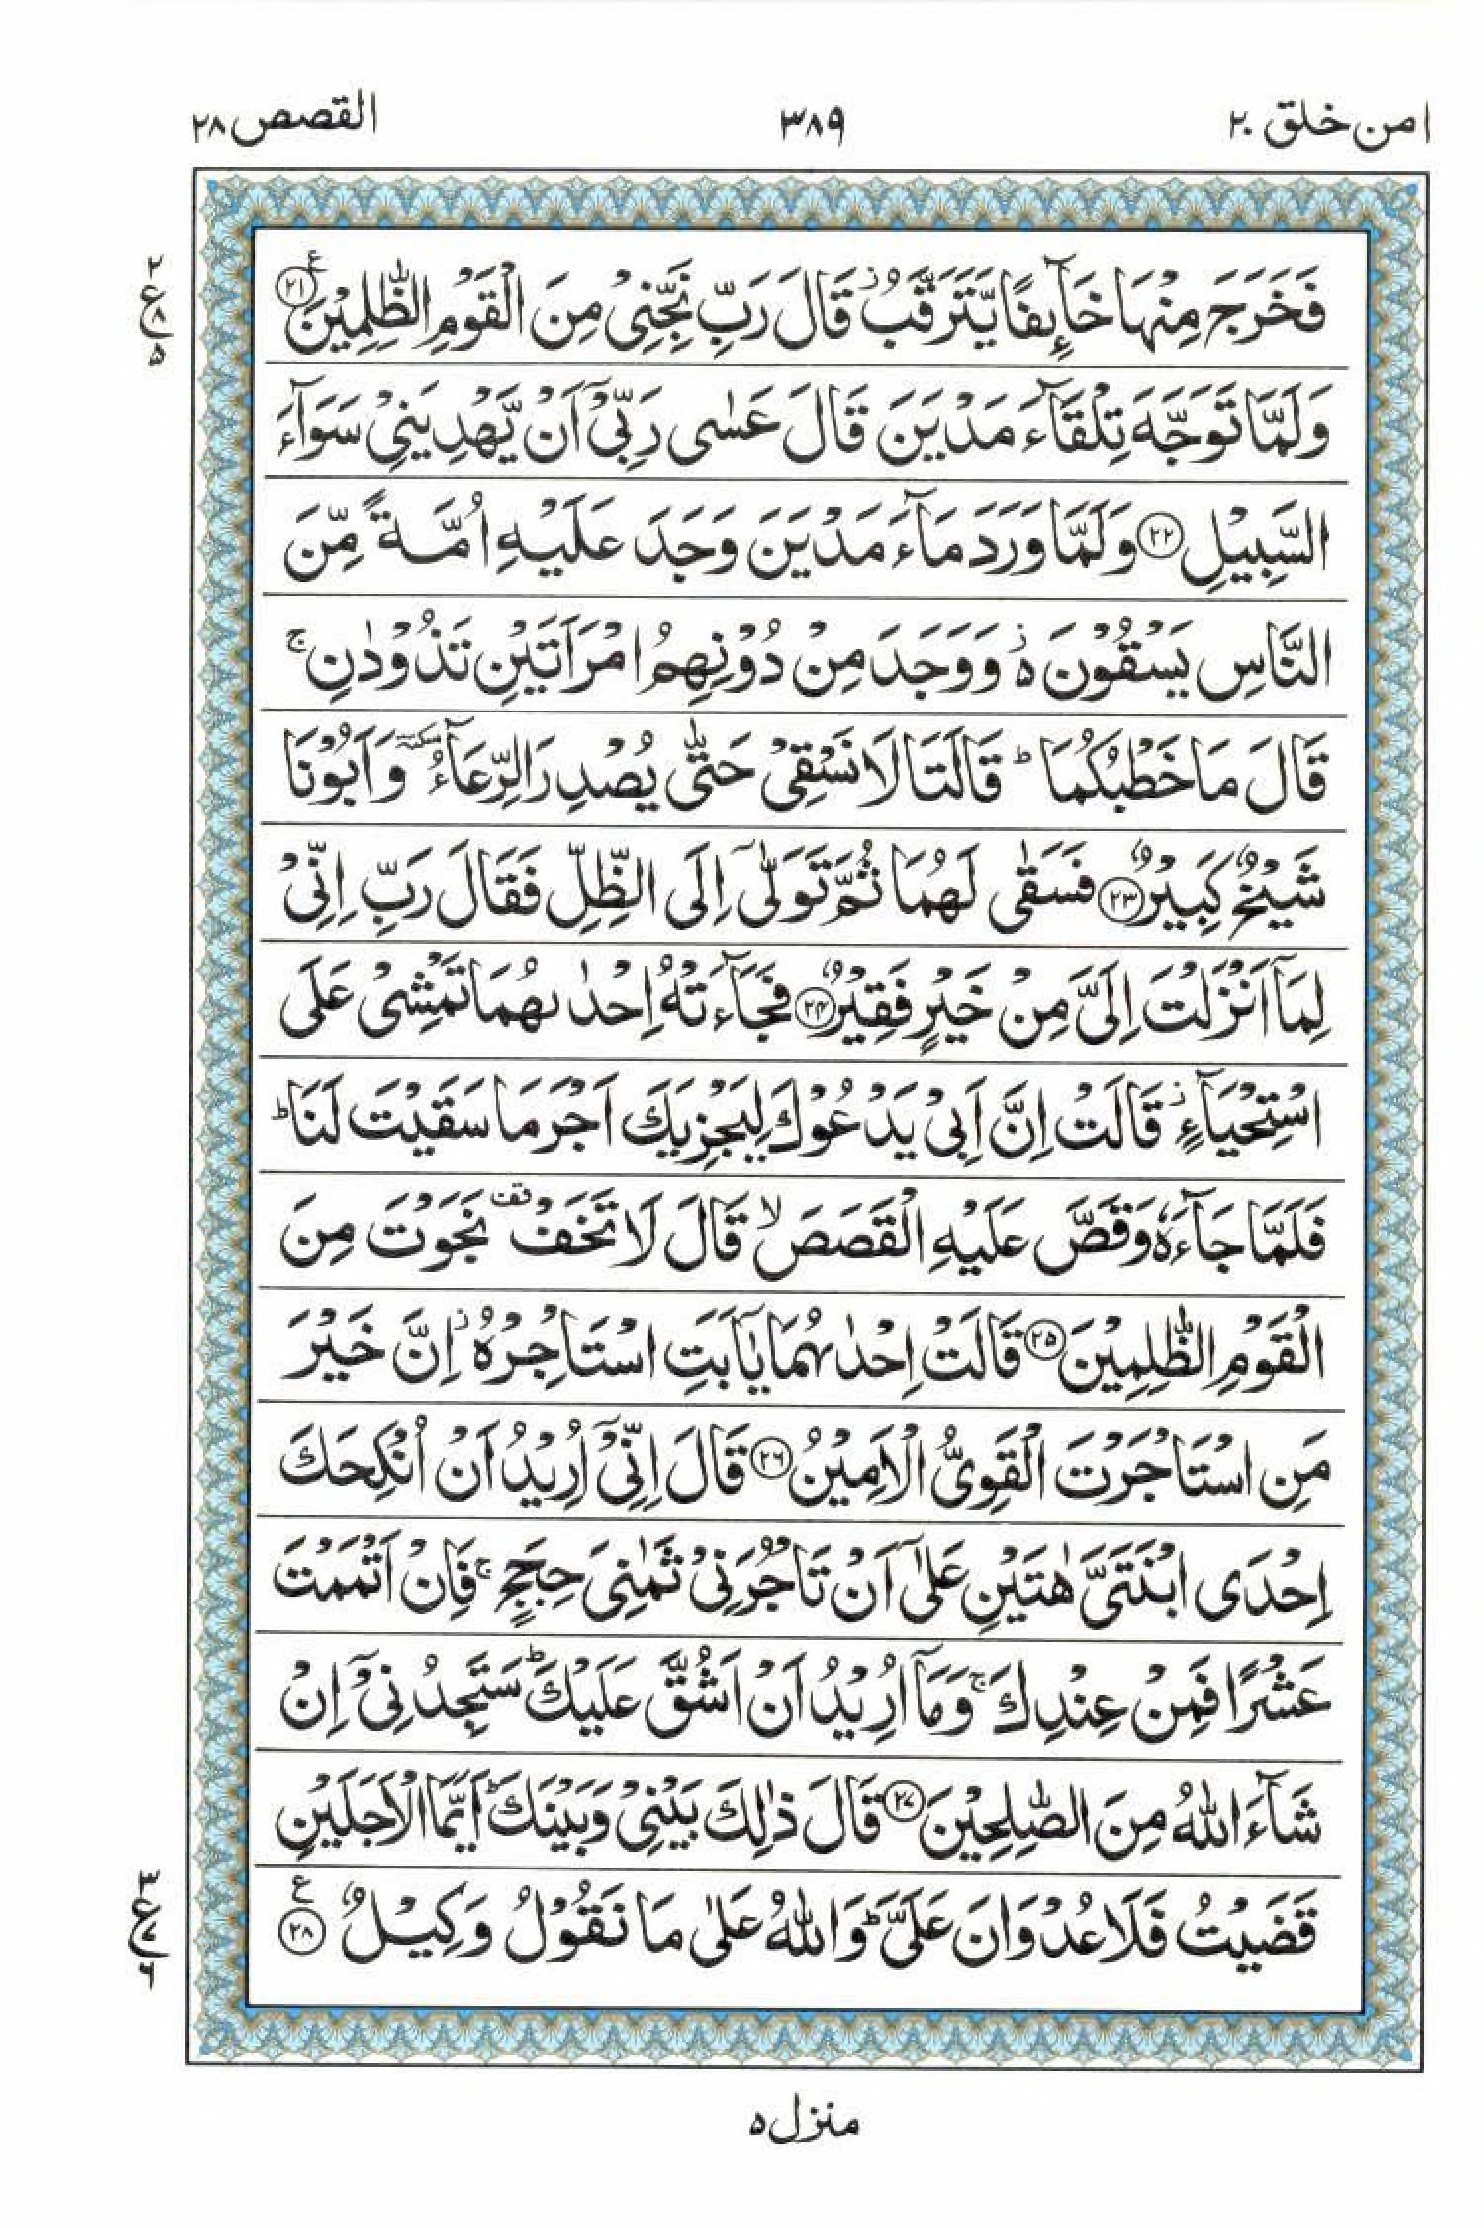 امن خلق ۲۰
۳۸۹
القصص ۲۸
فَخَرَجَ مِنْهَا خَآىِٕفًا یَّتَرَقَّبُ ؗ قَالَ رَبِّ نَجِّنِیْ مِنَ الْقَوْمِ الظّٰلِمِیْنَ ۟۠ ﴿۲۱﴾ ع
۲
ع
۸
۵
وَلَمَّا تَوَجَّهَ تِلْقَآءَ مَدْیَنَ قَالَ عَسٰی رَبِّیْۤ اَنْ یَّهْدِیَنِیْ سَوَآءَ
السَّبِیْلِ ﴿۲۲﴾ وَلَمَّا وَرَدَ مَآءَ مَدْیَنَ وَجَدَ عَلَیْهِ اُمَّةً مِّنَ
النَّاسِ یَسْقُوْنَ ۥ٘ وَوَجَدَ مِنْ دُوْنِهِمُ امْرَاَتَیْنِ تَذُوْدٰنِ ۚ
قَالَ مَا خَطْبُكُمَا ؕ قَالَتَا لَا نَسْقِیْ حَتّٰی یُصْدِرَ الرِّعَآءُ سكتة وَاَبُوْنَا
شَیْخٌ كَبِیْرٌ ﴿۲۳﴾ فَسَقٰی لَهُمَا ثُمَّ تَوَلّٰۤی اِلَی الظِّلِّ فَقَالَ رَبِّ اِنِّیْ
لِمَاۤ اَنْزَلْتَ اِلَیَّ مِنْ خَیْرٍ فَقِیْرٌ ﴿۲۴﴾ فَجَآءَتْهُ اِحْدٰىهُمَا تَمْشِیْ عَلَی
اسْتِحْیَآءٍ ؗ قَالَتْ اِنَّ اَبِیْ یَدْعُوْكَ لِیَجْزِیَكَ اَجْرَ مَا سَقَیْتَ لَنَا ؕ
فَلَمَّا جَآءَهٗ وَقَصَّ عَلَیْهِ الْقَصَصَ ۙ قَالَ لَا تَخَفْ قف نَجَوْتَ مِنَ
الْقَوْمِ الظّٰلِمِیْنَ ﴿۲۵﴾ قَالَتْ اِحْدٰىهُمَا یٰۤاَبَتِ اسْتَاْجِرْهُ ؗ اِنَّ خَیْرَ
مَنِ اسْتَاْجَرْتَ الْقَوِیُّ الْاَمِیْنُ ﴿۲۶﴾ قَالَ اِنِّیْۤ اُرِیْدُ اَنْ اُنْكِحَكَ
اِحْدَی ابْنَتَیَّ هٰتَیْنِ عَلٰۤی اَنْ تَاْجُرَنِیْ ثَمٰنِیَ حِجَجٍ ۚ فَاِنْ اَتْمَمْتَ
عَشْرًا فَمِنْ عِنْدِكَ ۚ وَمَاۤ اُرِیْدُ اَنْ اَشُقَّ عَلَیْكَ ؕ سَتَجِدُنِیْۤ اِنْ
شَآءَ اللّٰهُ مِنَ الصّٰلِحِیْنَ ﴿۲۷﴾ قَالَ ذٰلِكَ بَیْنِیْ وَبَیْنَكَ ؕ اَیَّمَا الْاَجَلَیْنِ
قَضَیْتُ فَلَا عُدْوَانَ عَلَیَّ ؕ وَاللّٰهُ عَلٰی مَا نَقُوْلُ وَكِیْلٌ ﴿۲۸﴾ ع
۳
ع
۷
۶
منزل ۵